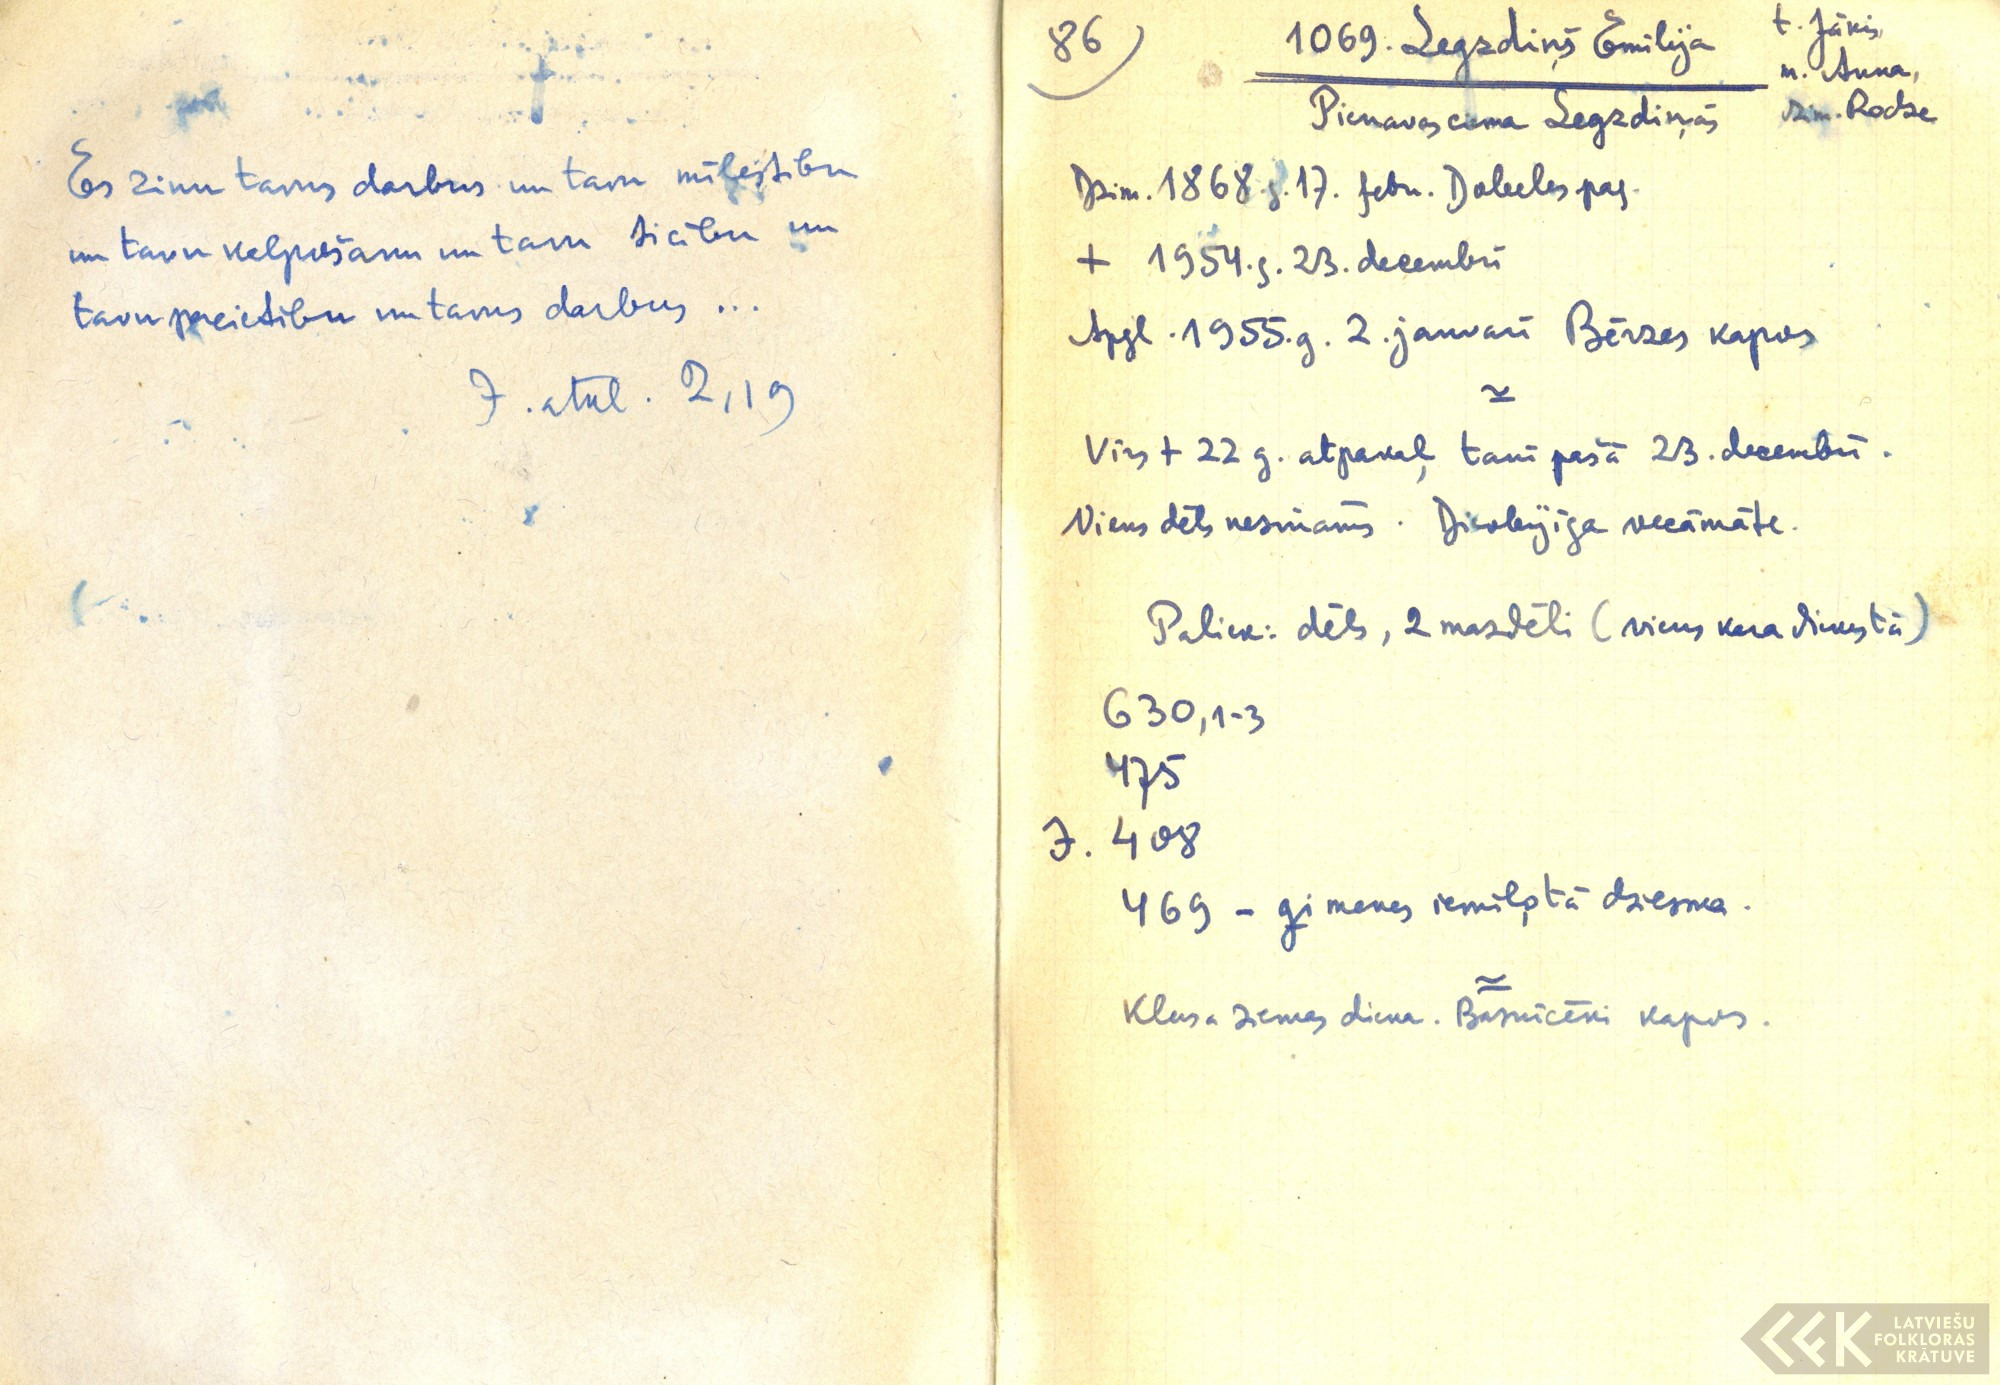 Es zinu tavus darbus un tavu mīlestību
un tavu kalpošanu un tavu ticību un
tavu pacietību un tavus darbus ...
J. atkl. 2,19
86
1069. Legzdiņš Emīlija
t. Jākis,
m. Anna,
dzim. Rodze
Pienavas cema Legzdiņās
Dzim. 1868.g. 17. febr. Dobeles pag.
+ 1954.g. 23. decembrī
Apgl. 1955.g. 2. janvarī Bērzes kapos
Vīrs + 22 g. atpakaļ, tanī pašā 23. decembrī.
Viens dēls nezināms. Dievbijīga vecāmāte.
Paliek: dēls, 2 mazdēli (viens kara dienestā)
630, 1-3
475
J. 408
469 - ģimenes iemīļotā dziesma.
Klusa ziemas diena. Baznīcēni kapos.
LATVIEŠU
FOLKLORAS
KRĀTUVE